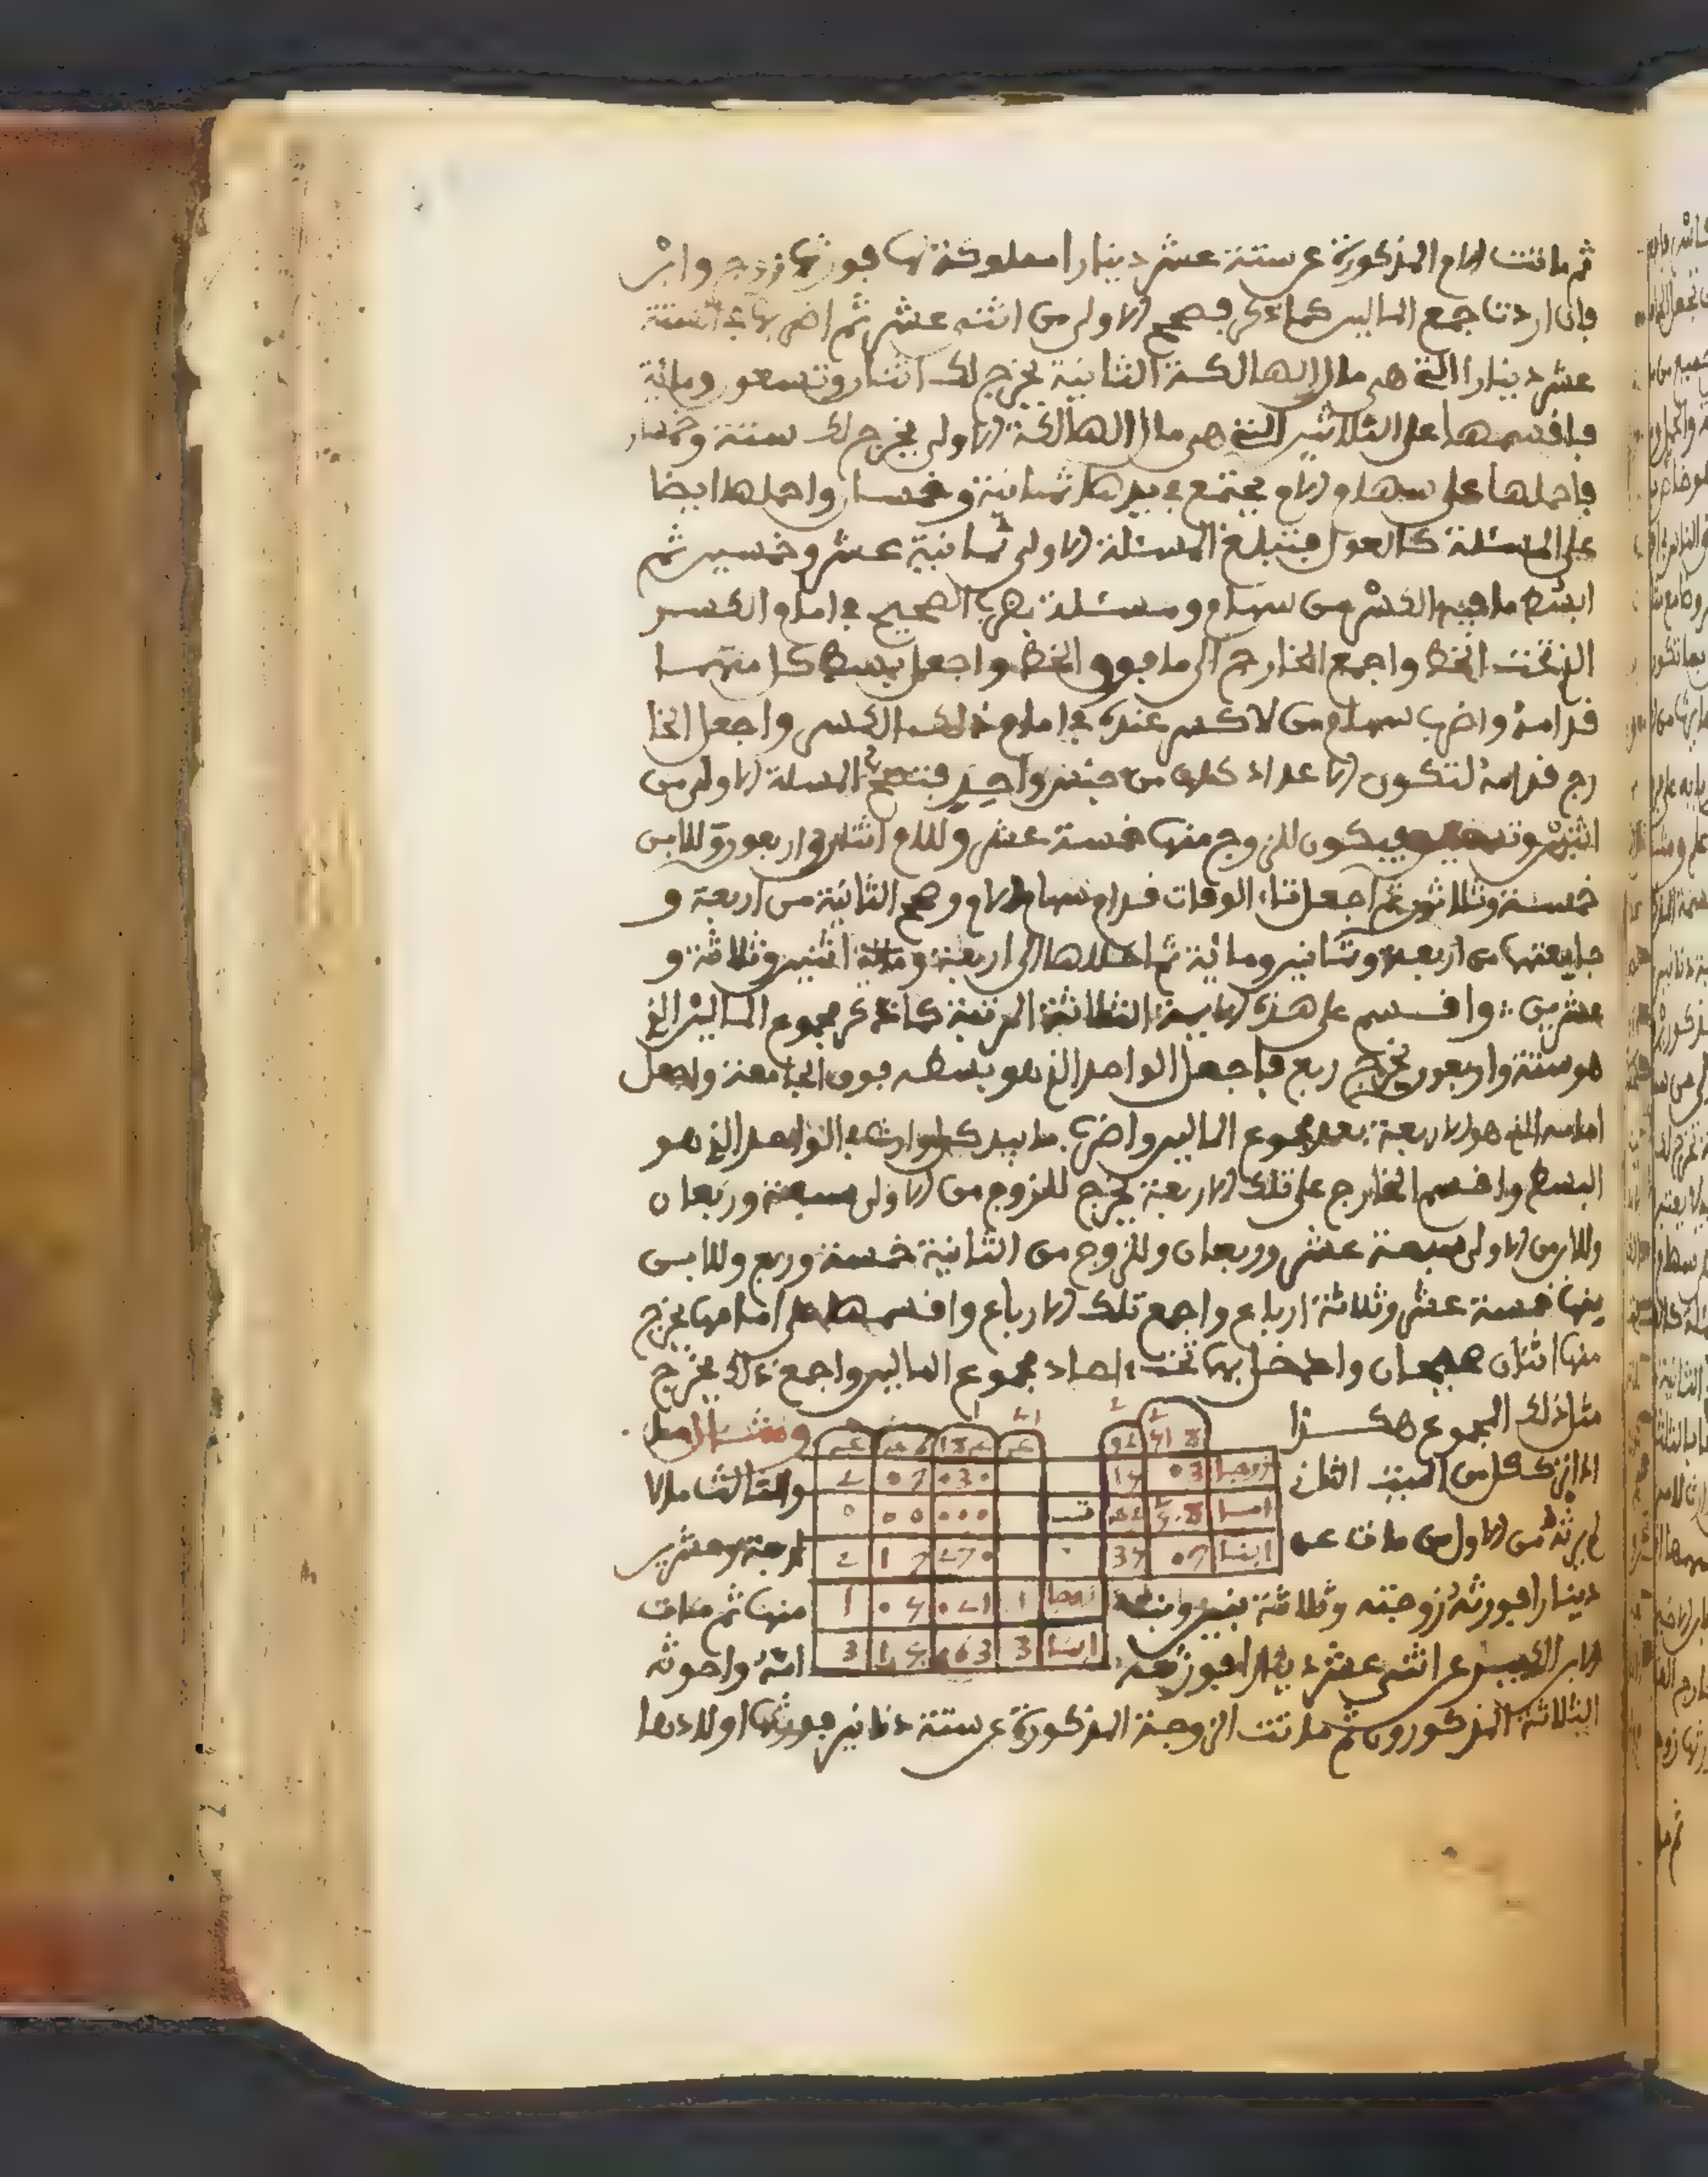 ثم ماتت الام المذكورة عن ستة عشر دينارا مملوكة لها فورثها زوج وابن
فان اردت جمع المالين كما ذكر فصحح الاولى من اثنى عشر ثم اضربها في الستة
عشر دينارا التي هي مال الهالكة الثانية يخرج لك اثنان وتسعون ومائة
فاقسمها على الثلاثين التي هي مال الهالكة الاولى يخرج لك ستة وخمسان
فاحملها على سهام الام يجتمع في يدها ثمانية وخمسان واحملها ايضا
على المسئلة كالعول فتبلغ المسئلة الاولى ثمانية عشر وخمسين ثم
ابسط ما فيه الكسر من سهام ومسئلة بضرب الصحيح في امام الكسر
الذي تحت الخط واجمع الخارج الى ما فوق الخط واجعل بسط كل منهما
قدامه واضرب سهام من لا كسر عنده في امام ذلك الكسر واجعل الخا
رج قدامه لتكون الاعداد كلها من جنس واحد فتصح المسئلة الاولى من
اثنين وتسعين فيكون للزوج منها خمسة عشر وللام اثنان واربعون وللابن
خمسة وثلاثون ثم اجعل تاء الوفات قدام سهام الام وصح الثانية من اربعة و
جامعتها من اربعة وثمانين ومائة ثم احللها الى اربعة و اثنين وثلاثة و
عشرين واقسم على هذه الايمة الثلاثة المرتبة كما ذكر مجموع المالين الذي
هو ستة واربعون يخرج ربع فاجعل الواحد الذي هو بسطه فوق الجامعة واجعل
امامه الذي هو الاربعة بعد مجموع المالين واضرب ما بيد كل وارث في الواحد الذي هو
البسط واقسم الخارج على تلك الاربعة يخرج للزوج من الاولى سبعة وربعان
وللابن من الاولى سبعة عشر وربعان وللزوج من الثانية خمسة وربع وللابن
منها خمسة عشر وثلاثة ارباع واجمع تلك الارباع واقسمها على امامها يخرج
منها اثنان صحيحان وادخل بها تحت احاد مجموع المالين واجمع ذلك يخرج
مثل ذلك المجموع هكذا ومثال
اذا ترك كل من الميت الثاني والثالث مالا
لم يرثه من الاول من مات عن اربعة وعشرين
دينارا فورثه زوجته وثلاثة بنين وبنت منها ثم مات
الابن الكبير عن اثنى عشر دينارا فورثه امه واخوته
الثلاثة المذكورون ثم ماتت الزوجة المذكورة عن ستة دنانير فورثها اولادها